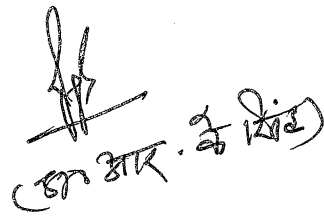 (डा० आर. के सिंह)